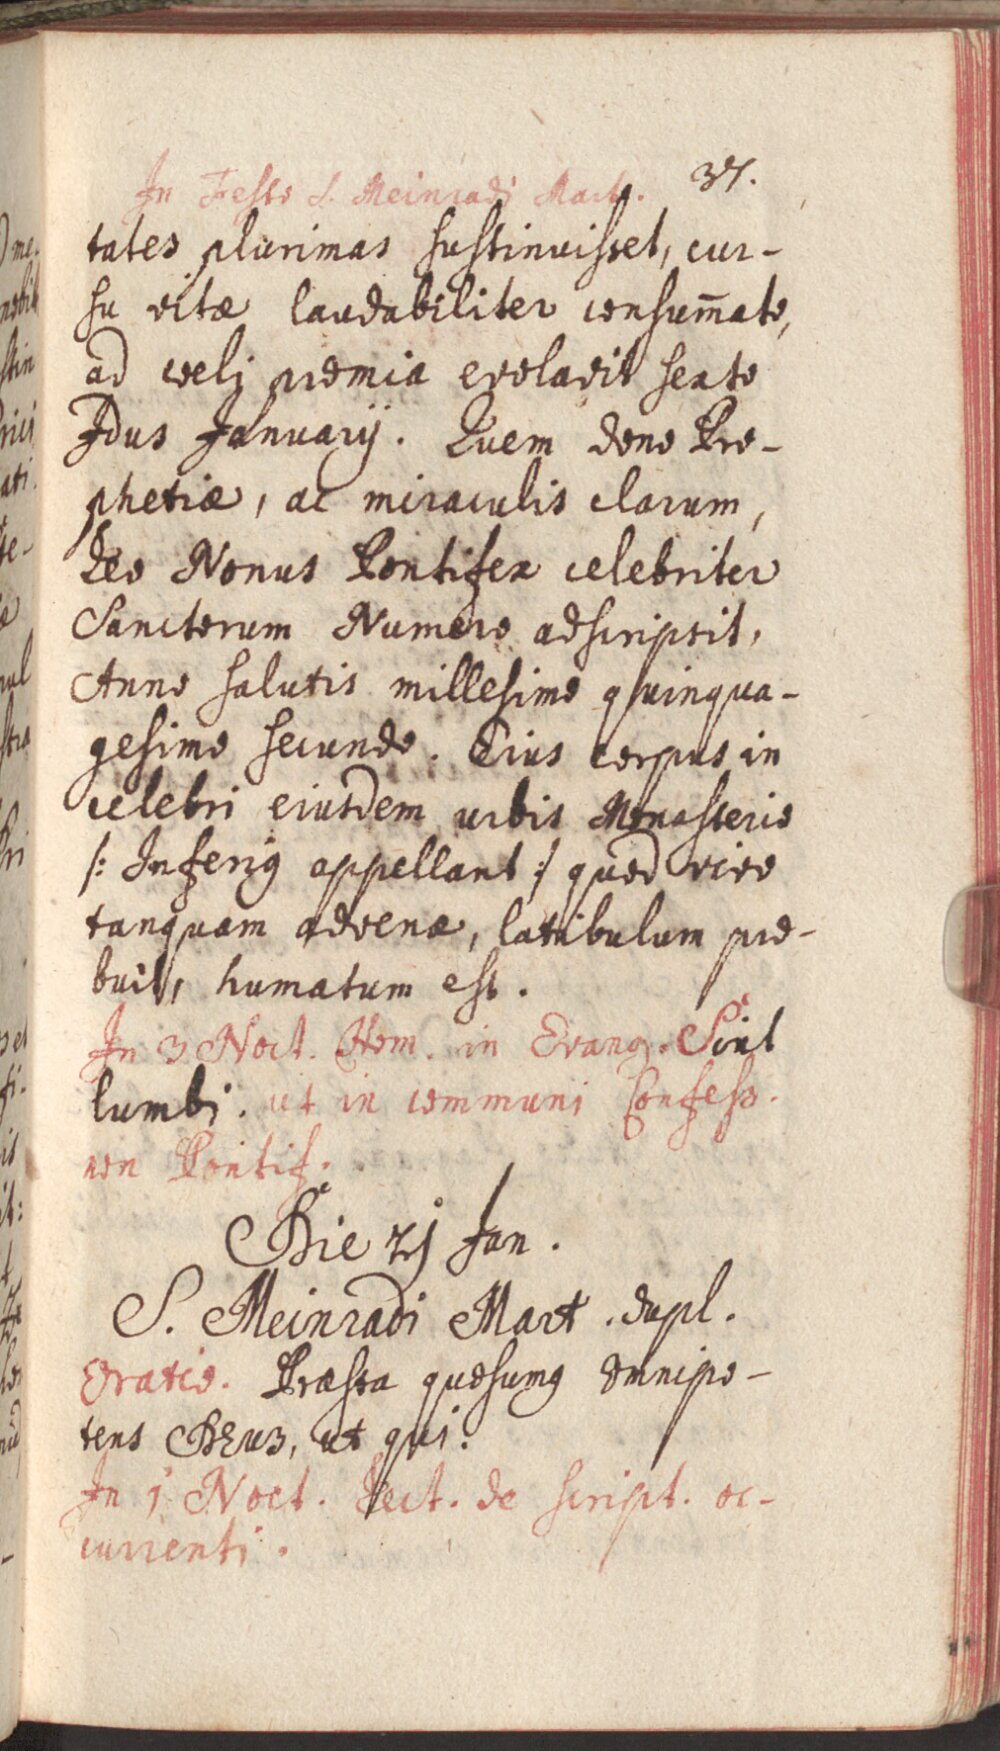 In Festo S. Meinradi Mart. 37.
tates plurimas sustinuisset, cur-
su vitæ laudabiliter consum̄ato,
ad coelj præmia evolavit sexto
Jdus Januarij. Quem dono Pro-
phetiæ, ac miraculis clarum,
Leo Nonus Pontifex celebriter
Sanctorum Numero adscripsit,
Anno salutis millesimo quinqua-
gesimo secundo. Eius corpus in
celebri eiusdem urbis Monasterio
/: Inferiꝰ appellant :/ quod vivo
tanquam advenæ, latibulum præ-
buit, humatum est.
In 3 Noct. Hom. in Evang. Sint
lumbi. ut in communi Confess.
non Pontif.
Die 21 Jan.
S. Meinradi Mart. dupl.
Oratio. Præsta quæsumꝰ omnipo-
tens DEus, ut qui.
In 1 Noct. Lect. de script. oc-
currenti.